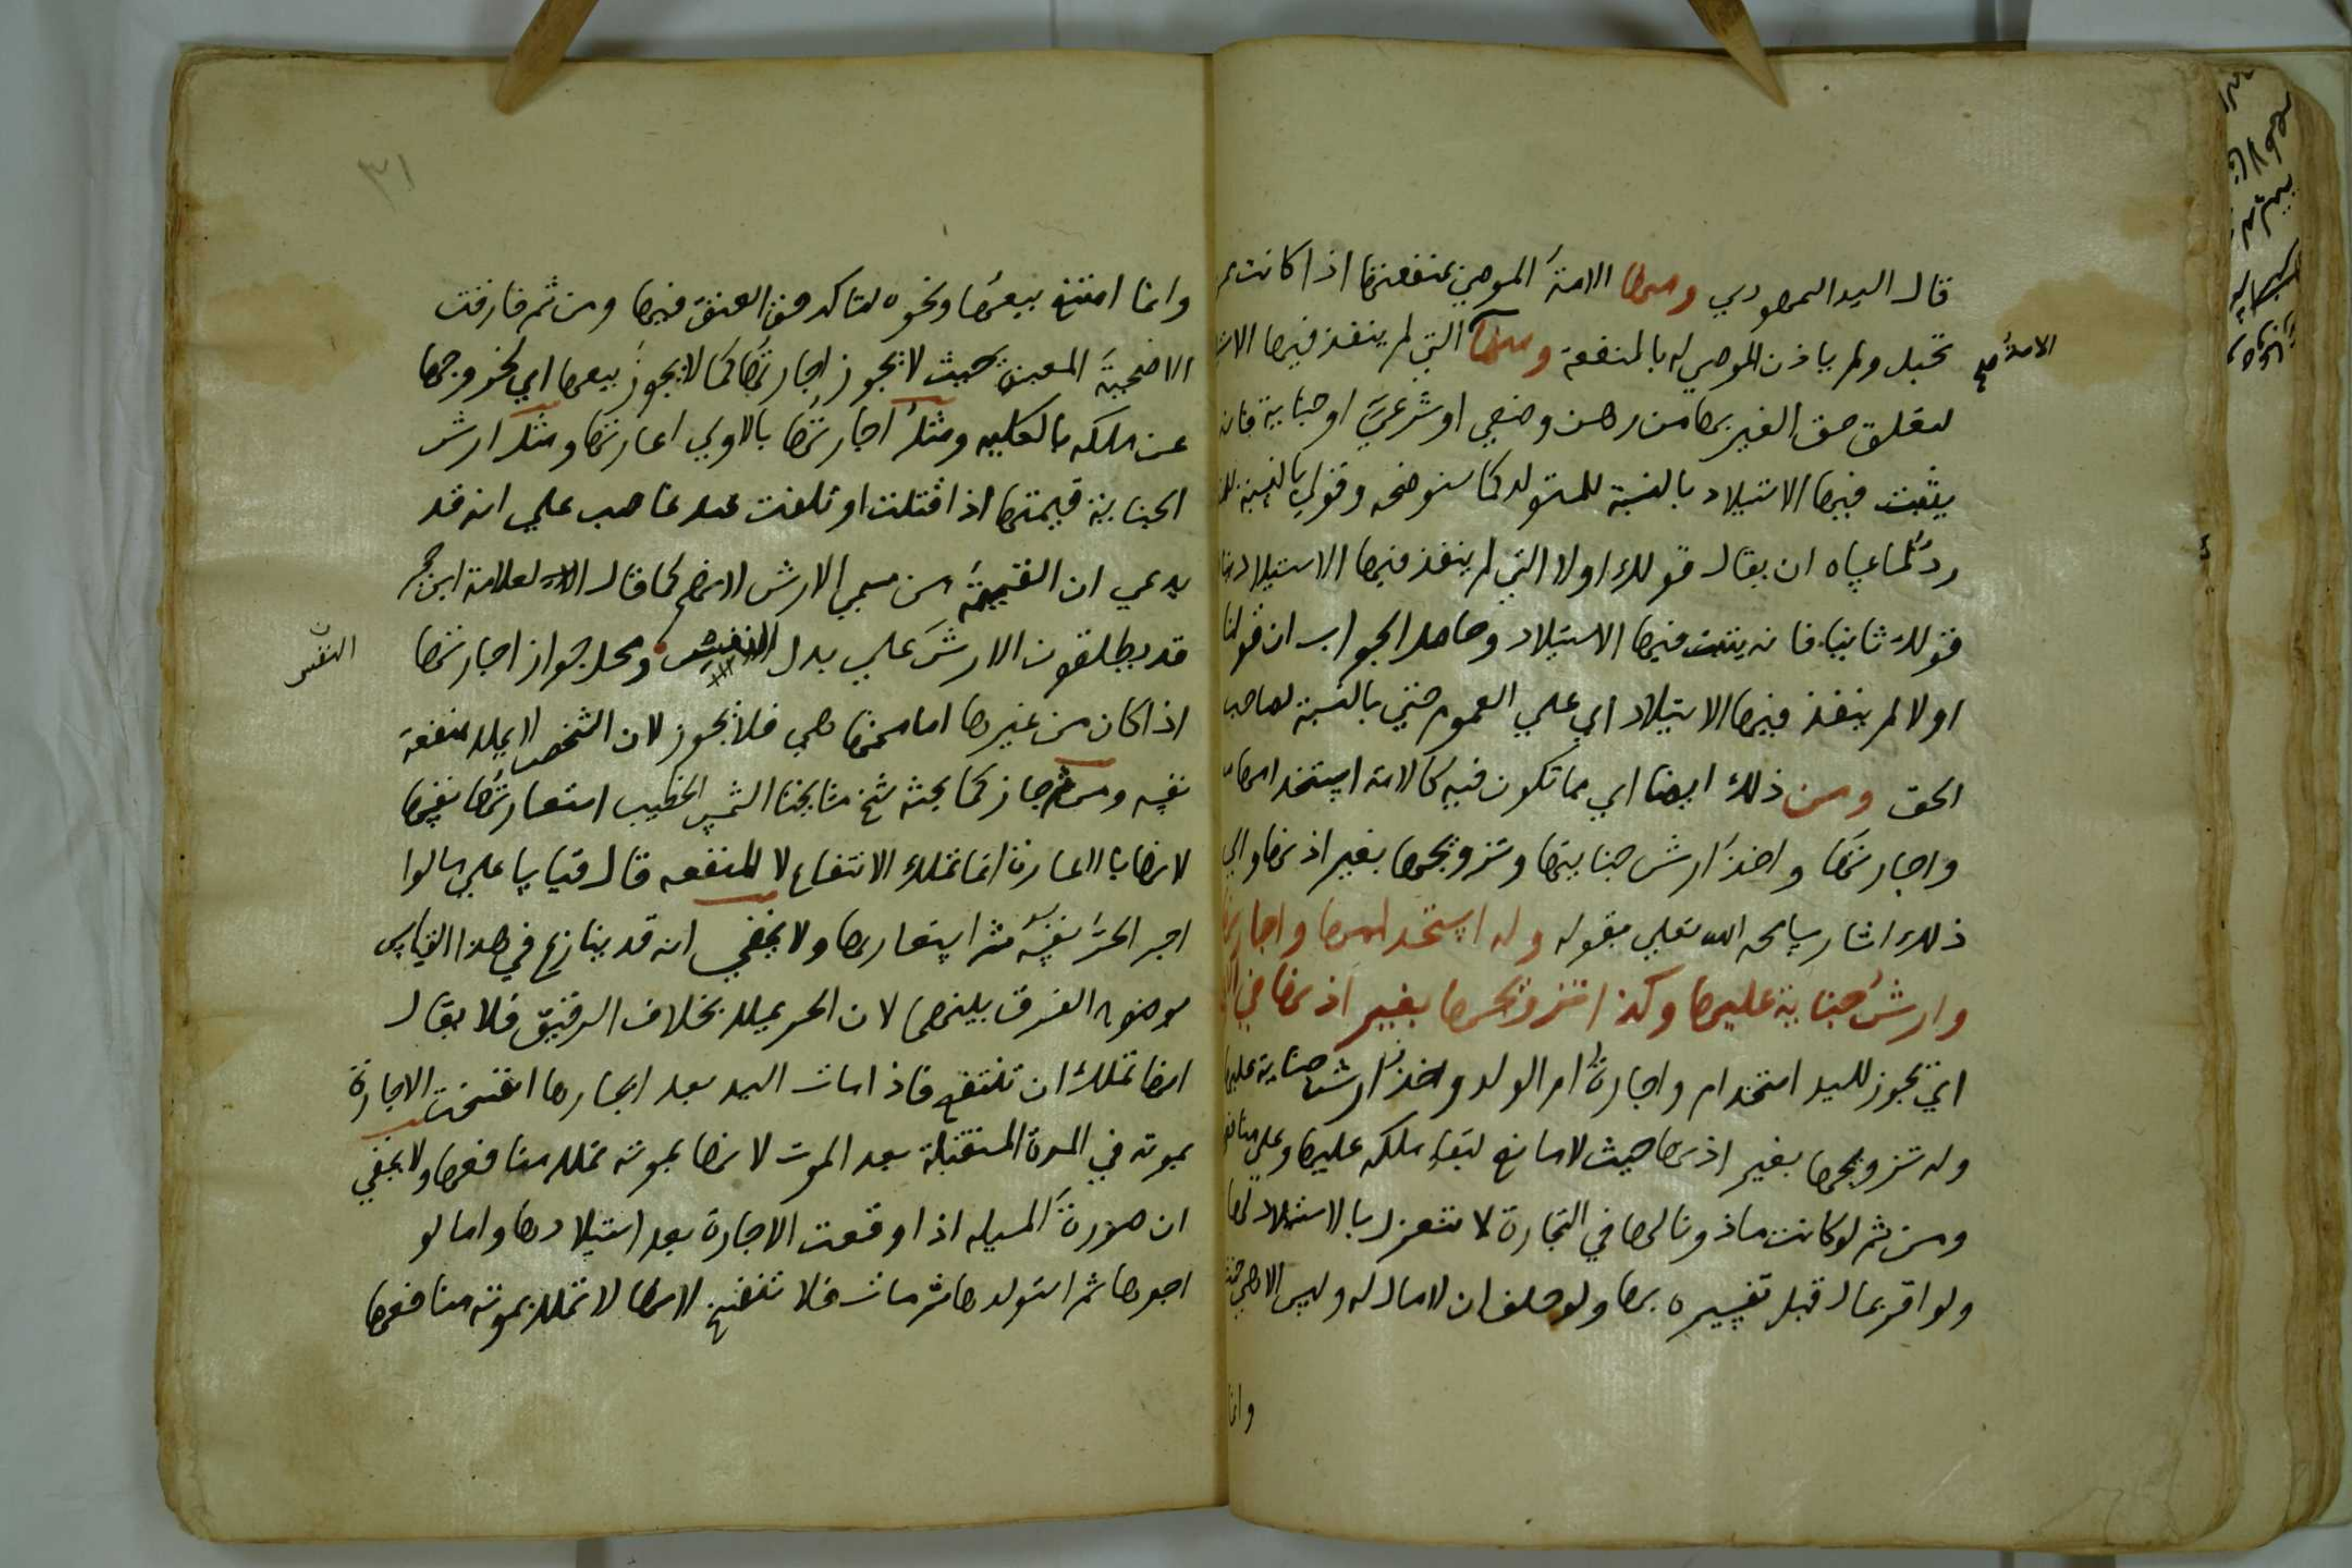 قال السيد السمهودي ومنها الامةُ الموصي بمنفعتها اذا كانت
تحبل ولم ياذن الموصي له بالمنفعة ومنها التي لم ينفذ فيها
الامة صح
لتعلق حق الغير بها من رهن وضعي او شرعيٍّ او جناية فانه
يثبت فيها الاستيلاد بالنسبة للمستولد كما سنوضحه وقولي بالنسبة
ردٌّ لما عساه ان يقال قولك اولا التي لم ينفذ فيها الاستيلاد
قولك ثانيا فانه يثبت فيها الاستيلاد وحاصل الجواب ان قولنا
اولا لم ينفذ فيها الاستيلاد اي علي العموم حتي بالنسبة لصاحب
الحق ومن ذلك ايضا اي مما تكون فيه كالامة استخدامها
واجارتها واخذ ارش جنايتها وتزويجها بغير اذنها والي
ذلك اشار سامحه الله تعلي بقوله وله استخدامها واجارتها
وارشُ جناية عليها وكذا تزويجها بغير اذنها في
اي يجوز للسيد استخدام واجارةُ ام الولد واخذ ارش جناية عليها
وله تزويجها بغير اذنها حيث لا مانع لبقاء ملكه عليها وعلي منافعها
ومن ثم لو كانت ماذونا لها في التجارة لا تنعزل بالاستيلاد
ولو اقر بمال قبل تفسيره بها ولو حلف ان لا مال له وليس الا هي حنث
وانما
٣١
وانما امتنع بيعُها ونحوه لتاكد حق العتق فيها ومن ثم فارقت
الاضحيةَ المعينة حيث لا يجوز اجارتُها كما لا يجوز بيعها اي لخروجها
عن ملكه بالكليه ومثلُ اجارتها بالاولي اعارتها ومثل ارش
الجناية قيمتها اذا قتلت او تلفت عند غاصب علي انه قد
يدعي ان القيمةَ من مسمي الارش لانهم كما قال العلامة ابن حجر
قد يطلقون الارشَ علي بدل النفس ومحل جواز اجارتها
النفس
اذا كان من غيرها اما منها هي فلا يجوز لان الشخص لا يملك منفعة
نفسه ومن ثم جاز كما بحثه شيخ مشايخنا الشمس الخطيب استعارتُها نفسها
لانها بالعارية انما تملك الانتفاع لا المنفعه قال قياسا علي ما لو
اجر الحرُّ نفسه ثم استعارها ولا يخفي انه قد ينازع في هذا القياس
بوضوح الفرق بينهما لان الحر يملك بخلاف الرقيق فلا يقال
انها تملك ان تنتفع فاذا مات السيد بعد ايجارها انفسخت الاجارة
بموته في المدة المستقبلة بعد الموت لانها بموته تملك منافعها ولا يخفي
ان صورةَ المسيله اذا وقعت الاجارة بعد استيلادها واما لو
اجرها ثم استولدها ثم مات فلا تنفسخ لانها لا تملك بموته منافعها